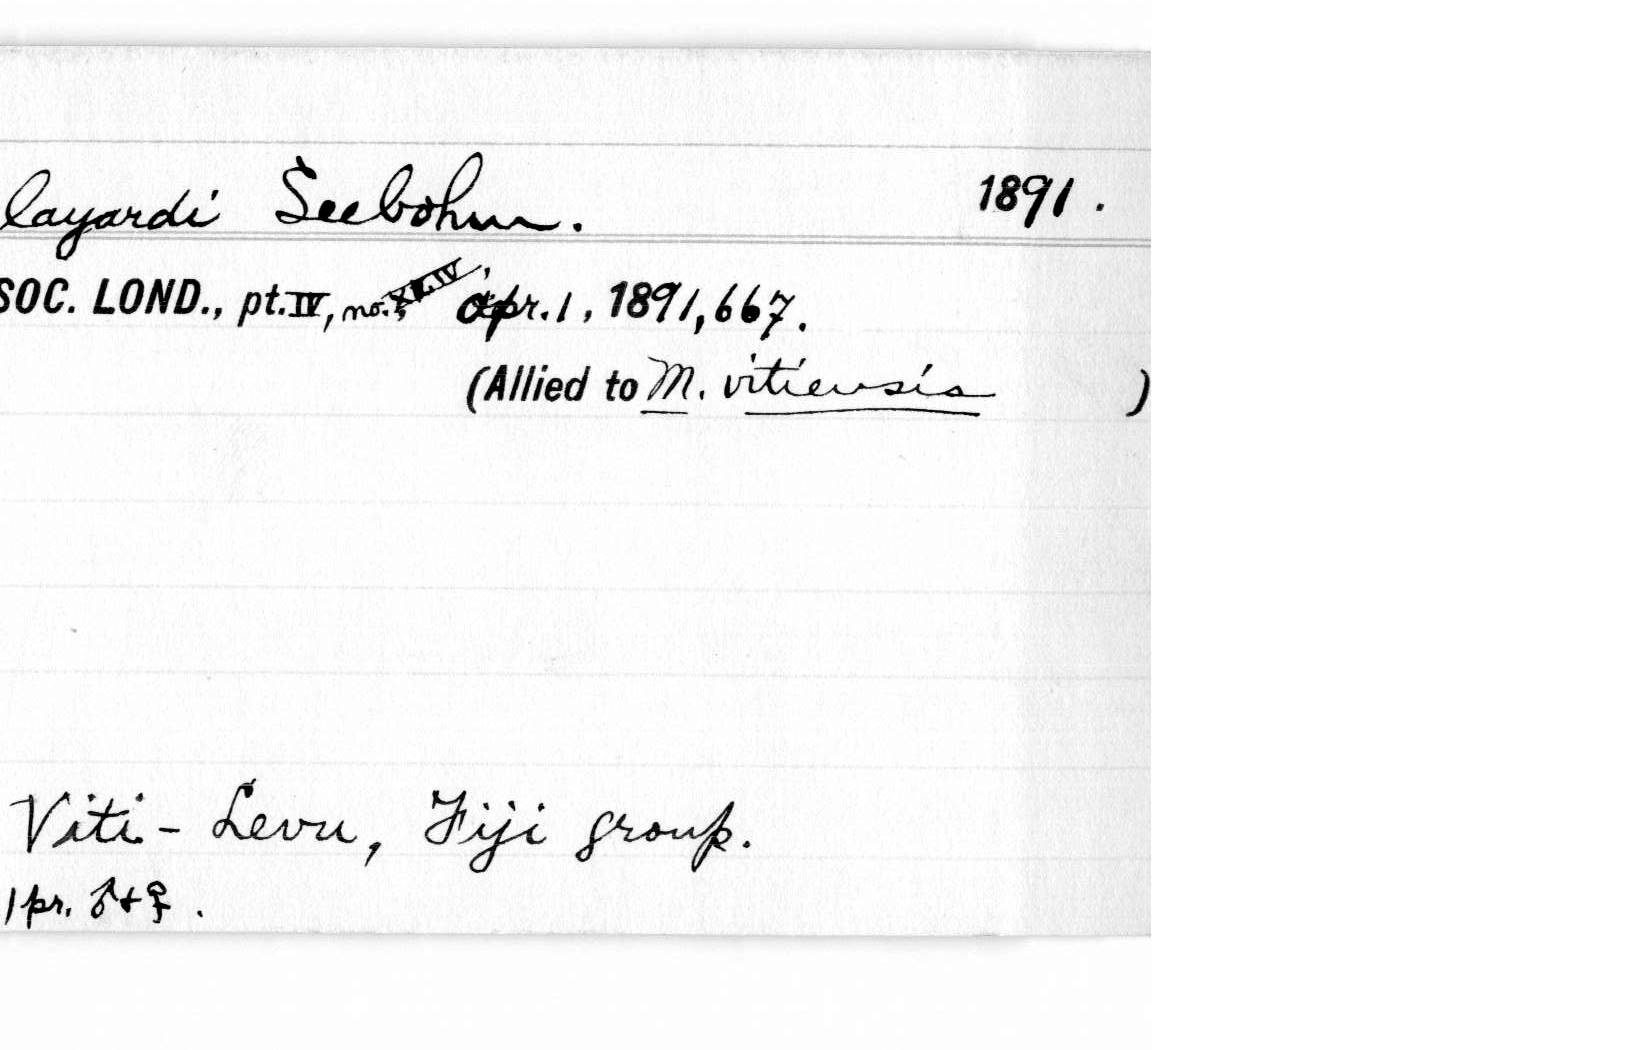 layardi Seebohm. 1891.
SOC. LOND., pt. IV, no. XLIV, Apr. 1, 1891, 667.
(Allied to M. vitiensis )
Viti-Levu, Fiji group.
1 pr. ♂ + ♀.